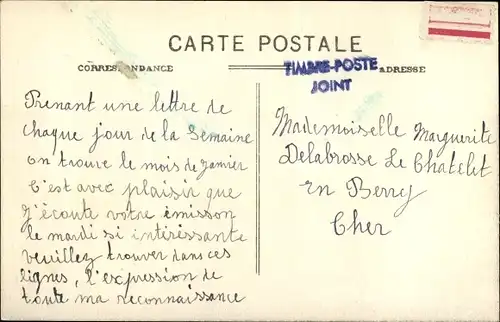 CARTE POSTALE
CORRESPONDANCE
ADRESSE
TIMBRE-POSTE
JOINT
Prenant une lettre de
chaque jour de la semaine
on trouve le mois de Janvier
C'est avec plaisir que
j'écoute votre émisson
le mardi si intéréssante
veuillez trouver dans ces
lignes, l'expression de
toute ma reconnaissance
Mademoiselle Marguerite
Delabrosse Le Chatelet
en Berry
Cher